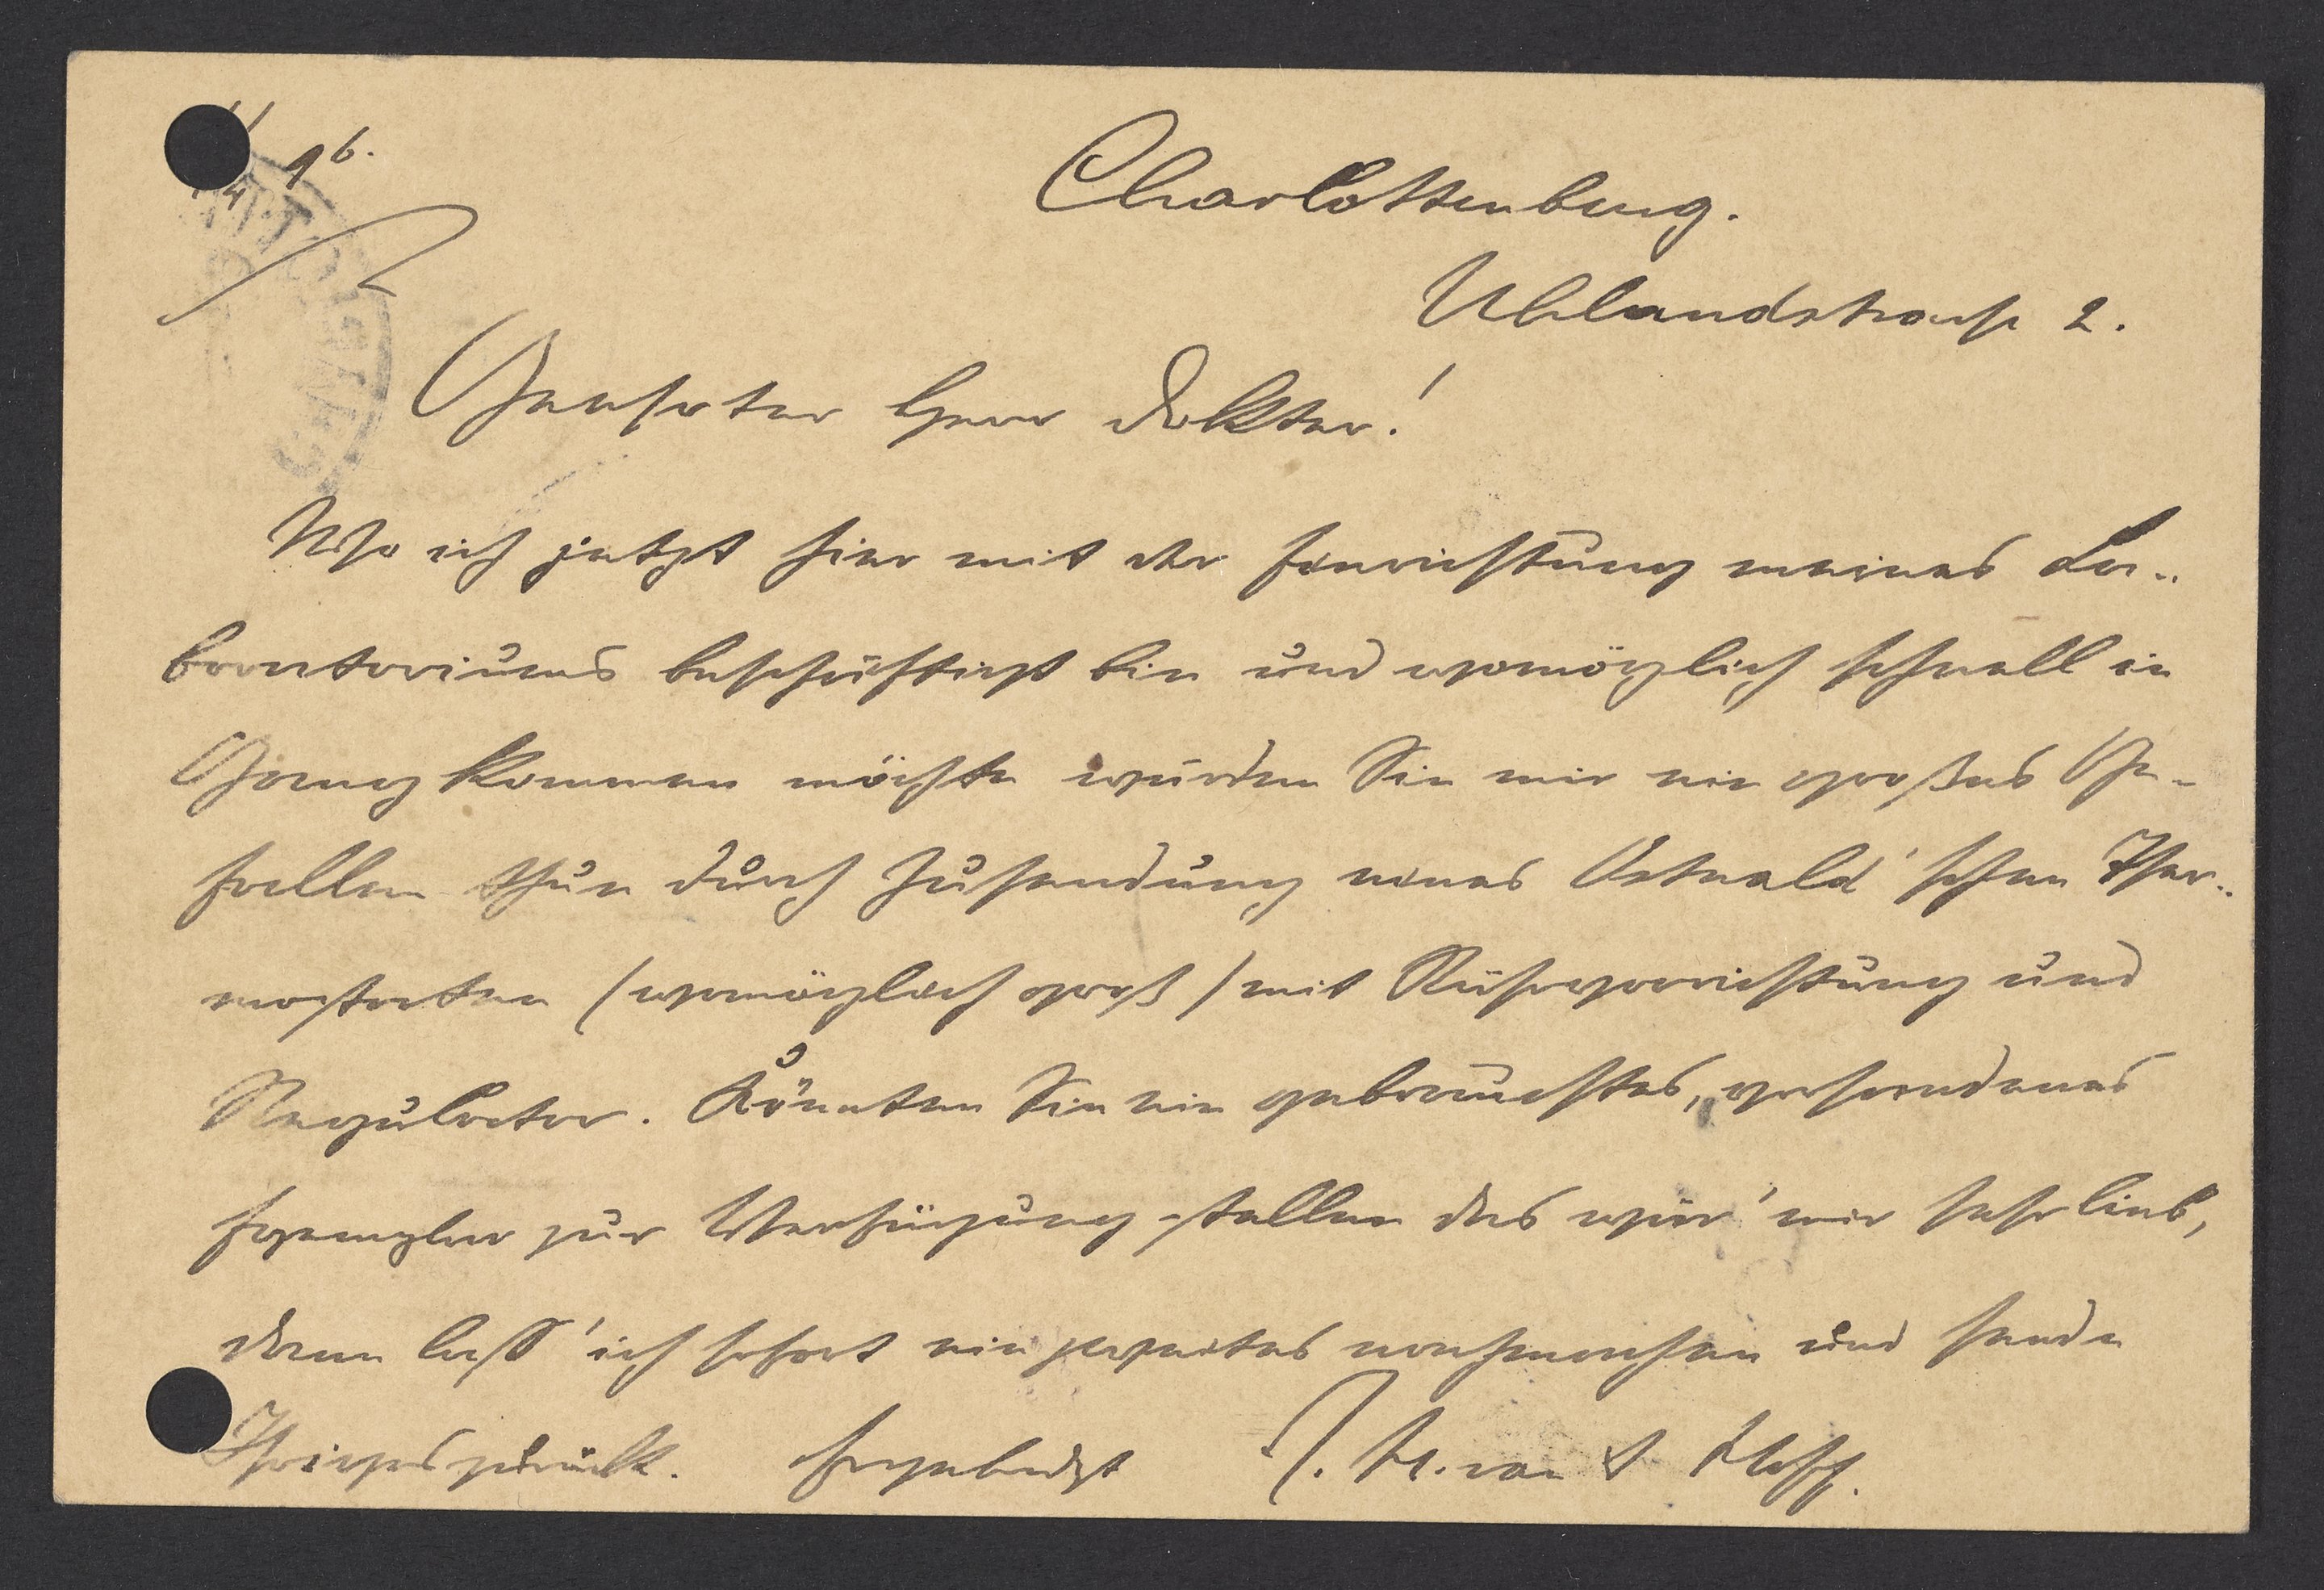 96.
Charlottenburg.
Uhlandstrasse 2.
Geehrter Herr Doktor!
Wo ich jetzt hier mit der Einrichtung meines La-
boratoriums beschäftigt bin und womöglich schnell in
Gang kommen möchte würden Sie mir ein großes Ge-
fallen thun durch Zusendung eines Ostwald'schen Ther-
mostaten (womöglich groß) mit Rührvorrichtung und
Regulator. Könnten Sie ein gebrauchtes, vorhandenes
Exemplar zur Verfügung stellen das wär' mir sehr lieb,
dann lass' ich sofort ein zweites nachmachen und sende
Ihriges zurück. Ergebenst J. H. van 't Hoff.